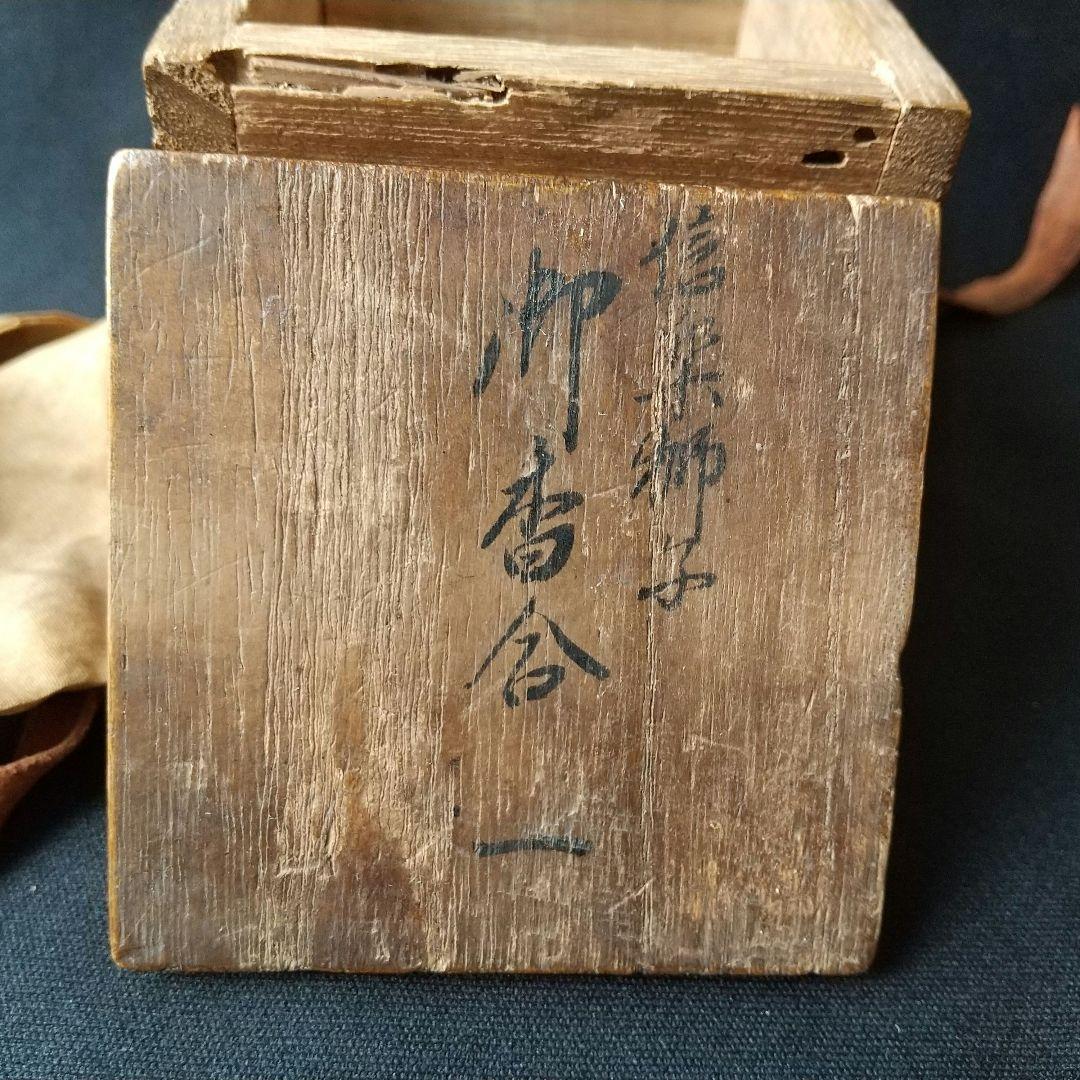 信楽獅子
御香合
一